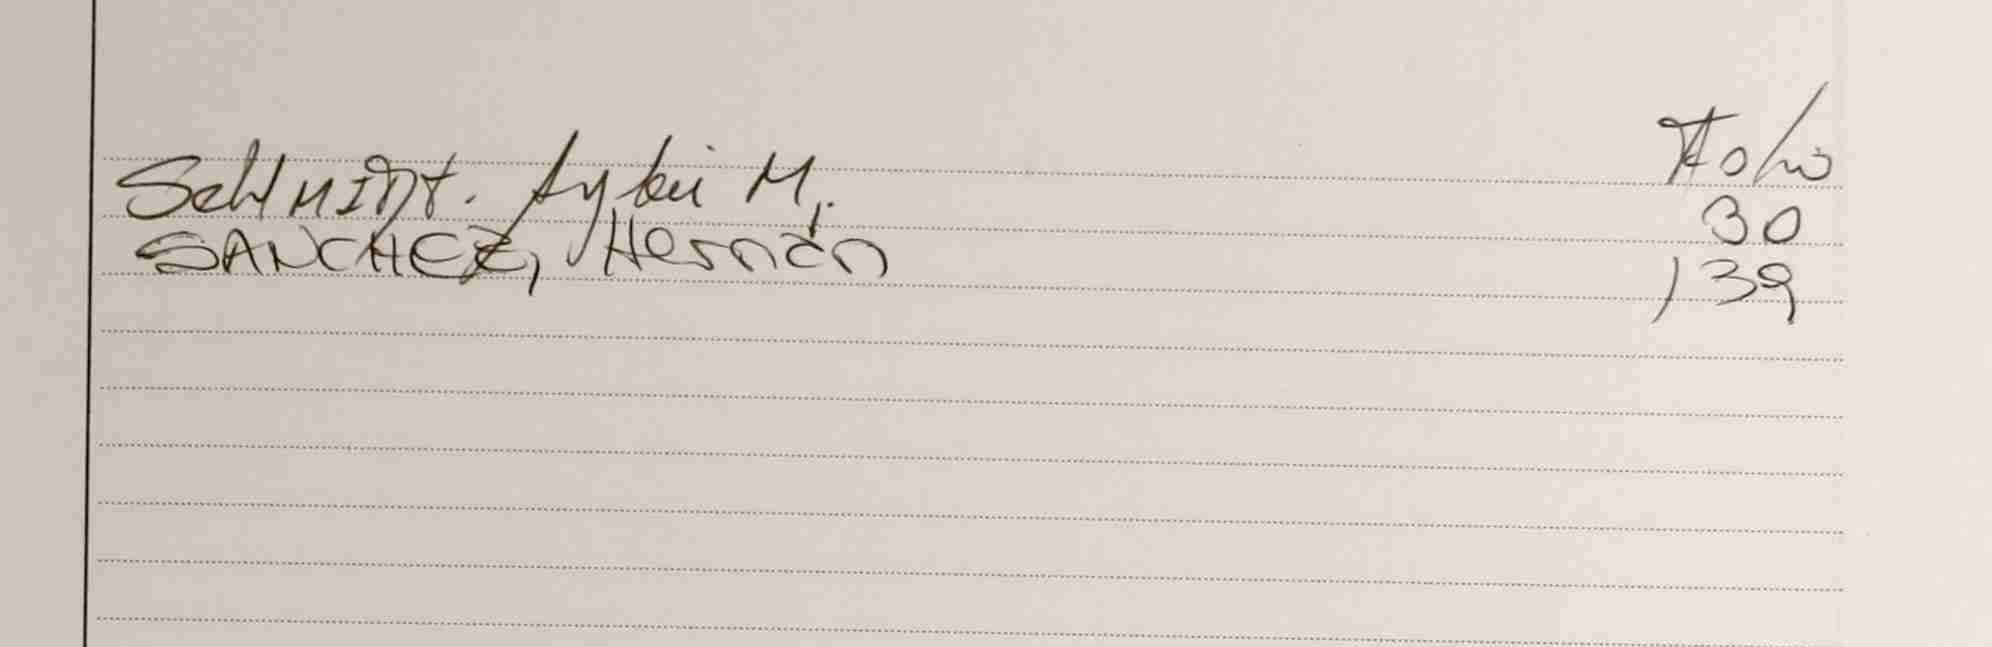 Folio
Schmidt. Aylén M. 30
SANCHEZ, Hernán 139